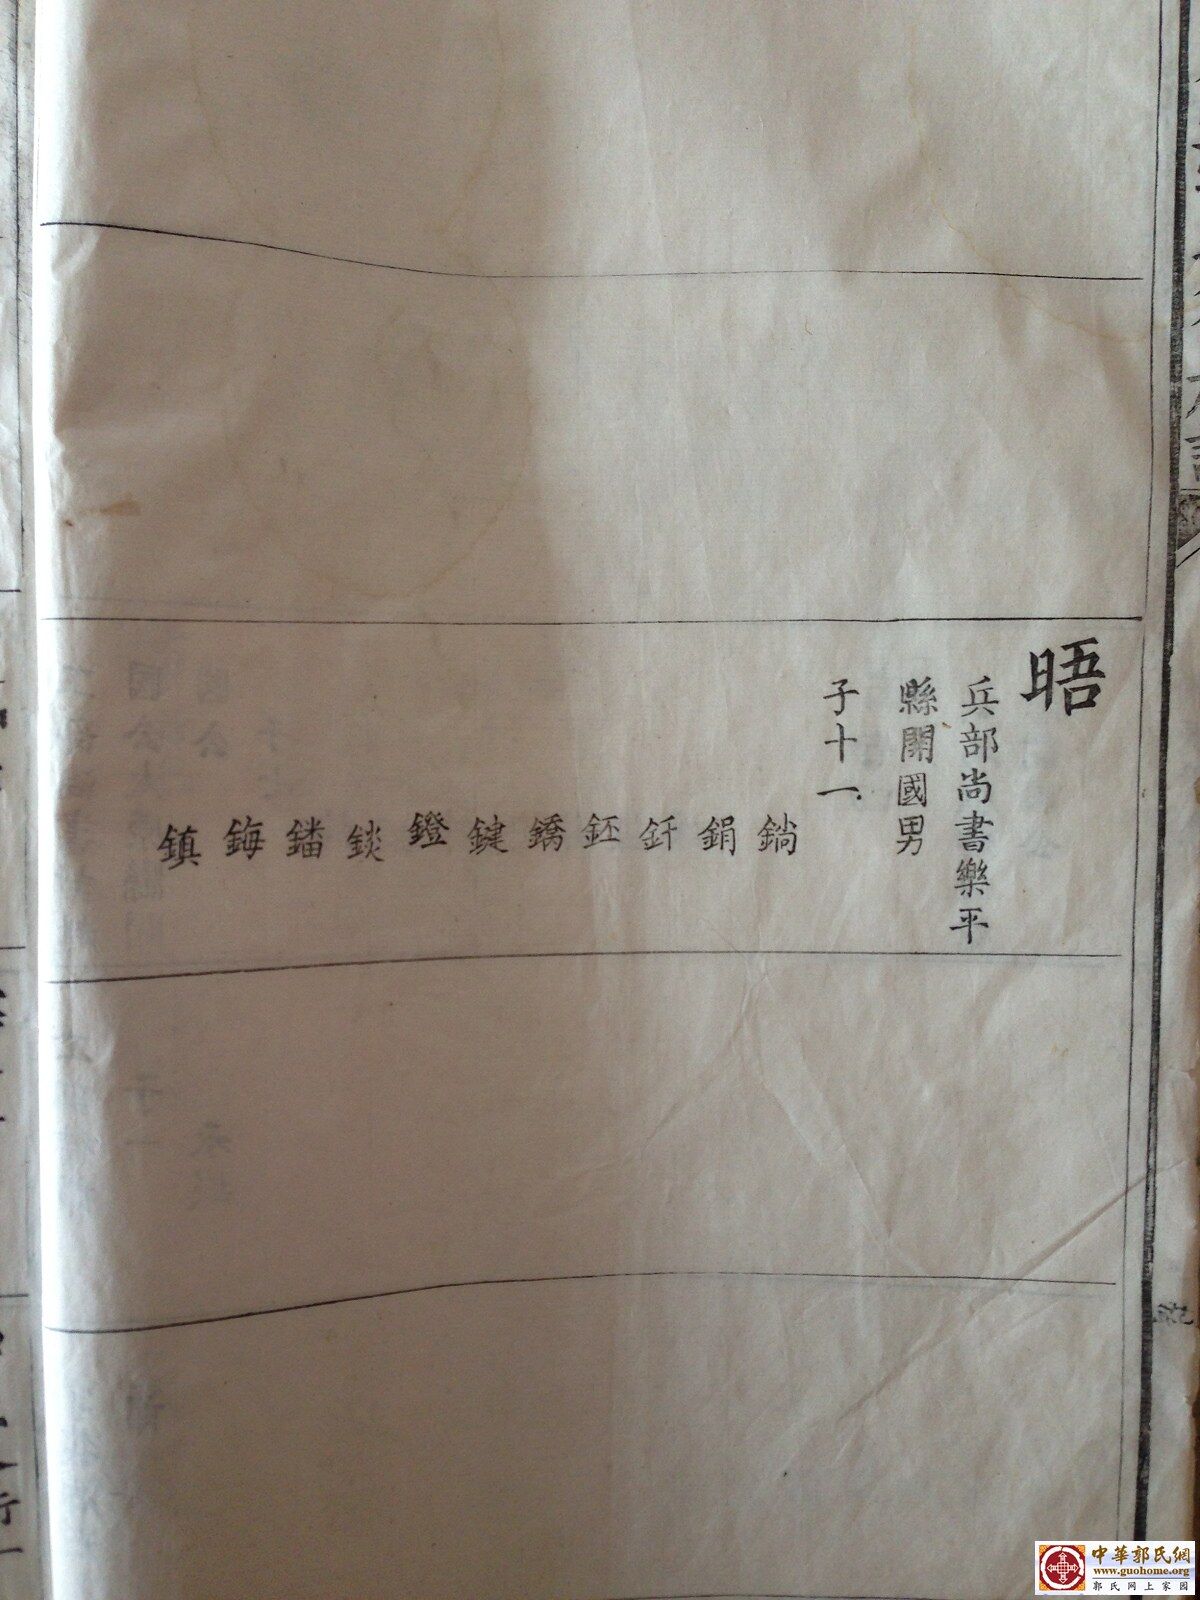 晤
兵部尚書樂平
縣開國男
子十一
鋿 鋗 釬 鉟 鐈 鍵 鐙 錟 鐇 鋂 鎮
中華郭氏網
www.guohome.org
郭氏网上家园